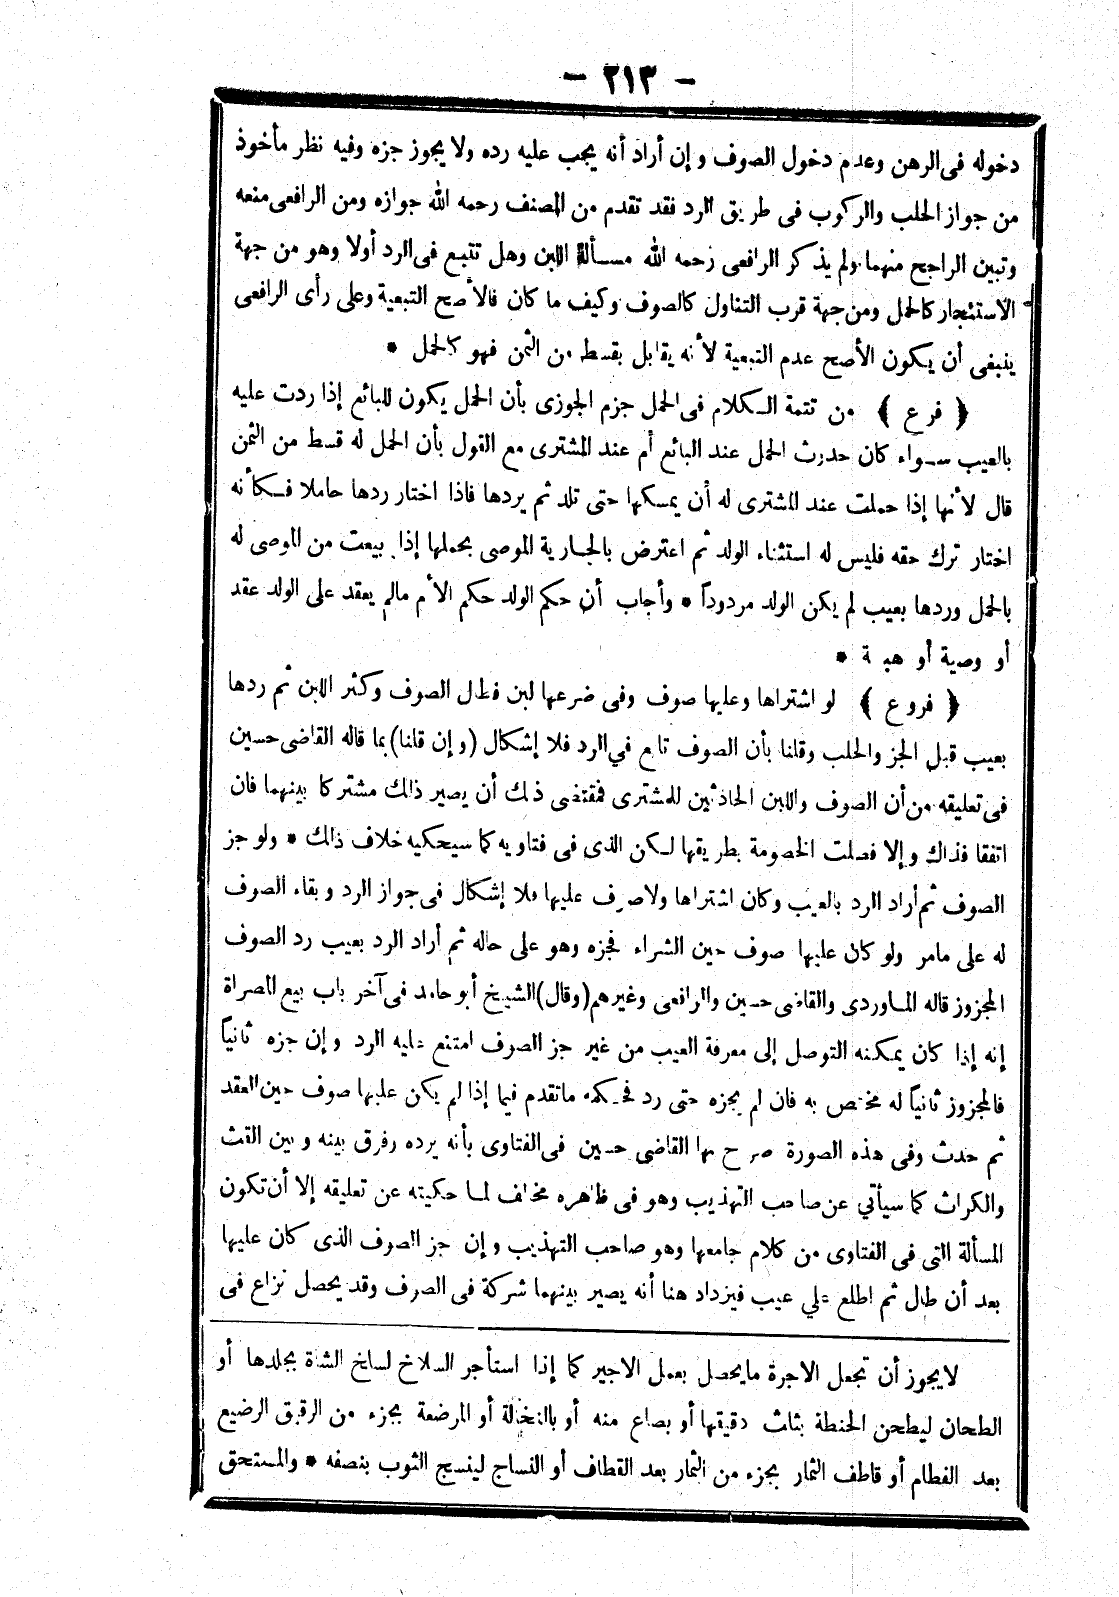 - ٢١٣ -
دخوله فى الرهن وعدم دخول الصوف وإن أراد أنه يجب عليه رده ولا يجوز جزه وفيه نظر مأخوذ
من جواز الحلب والركوب فى طريق الرد فقد تقدم من المصنف رحمه الله جوازه ومن الرافعى منعه
وتبين الراجح منهما ولم يذكر الرافعى رحمه الله مسألة اللبن وهل تتبع فى الرد أولا وهو من جهة
الاستئجار كالحمل ومن جهة قرب التناول كالصوف وكيف ما كان فالأصح التبعية وعلى رأى الرافعى
ينبغى أن يكون الأصح عدم التبعية لأنه يقابل بقسط من الثمن فهو كالحمل *
﴿ فرع ﴾ من تتمة الكلام فى الحمل جزم الجوزى بأن الحمل يكون للبائع إذا ردت عليه
بالعيب سواء كان حدث الحمل عند البائع أم عند المشترى مع القول بأن الحمل له قسط من الثمن
قال لأنها إذا حملت عند المشترى له أن يمسكها حتى تلد ثم يردها فاذا اختار ردها حاملا فكأنه
اختار ترك حقه فليس له استثناء الولد ثم اعترض بالجارية الموصى بحملها إذا بيعت من الموصى له
بالحمل وردها بعيب لم يكن الولد مردوداً * وأجاب أن حكم الولد حكم الأم مالم يعقد على الولد عقد
أو وصية أو هبة *
﴿ فروع ﴾ لو اشتراها وعليها صوف وفى ضرعها لبن فطال الصوف وكثر اللبن ثم ردها
بعيب قبل الجز والحلب وقلنا بأن الصوف تابع في الرد فلا إشكال (وإن قلنا) بما قاله القاضى حسين
فى تعليقه من أن الصوف واللبن الحادثين للمشترى فمقتضى ذلك أن يصير ذلك مشتركا بينهما فان
اتفقا فذاك وإلا فصلت الخصومة بطريقها لكن الذى فى فتاويه كما سيحكيه خلاف ذلك * ولو جز
الصوف ثم أراد الرد بالعيب وكان اشتراها ولا صوف عليها فلا إشكال فى جواز الرد وبقاء الصوف
له على مامر ولو كان عليها صوف حين الشراء فجزه وهو على حاله ثم أراد الرد بعيب رد الصوف
المجزوز قاله الماوردى والقاضى حسين والرافعى وغيرهم (وقال) الشيخ أبو حامد فى آخر باب بيع المصراة
إنه إذا كان يمكنه التوصل إلى معرفة العيب من غير جز الصوف امتنع عليه الرد وإن جزه ثانياً
فالمجزوز ثانياً له مختص به فان لم يجزه حتى رد فحكمه ماتقدم فيما إذا لم يكن عليها صوف حين العقد
ثم حدث وفى هذه الصورة صرح بها القاضى حسين فى الفتاوى بأنه يرده وفرق بينه وبين القت
والكراث كما سيأتي عن صاحب التهذيب وهو فى ظاهره مخالف لما حكيته عن تعليقه إلا أن تكون
المسألة التى فى الفتاوى من كلام جامعها وهو صاحب التهذيب وإن جز الصوف الذى كان عليها
بعد أن طال ثم اطلع على عيب فيزداد هنا أنه يصير بينهما شركة فى الصوف وقد يحصل نزاع فى
لايجوز أن تجعل الاجرة مايحصل بعمل الاجير كما إذا استأجر السلاخ لسلخ الشاة بجلدها أو
الطحان ليطحن الحنطة بثلث دقيقها أو بصاع منه أو بالنخالة أو المرضعة بجزء من الرقيق الرضيع
بعد الفطام أو قاطف الثمار بجزء من الثمار بعد القطاف أو النساج لينسج الثوب بنصفه * والمستحق